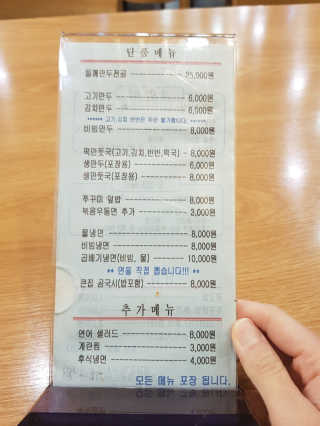 단품메뉴
들깨만두전골 -------------- 25,000원
고기만두 ------------------ 6,000원
김치만두 ------------------ 6,000원
****** 고기,김치 반반은 주문 불가합니다. ******
비빔만두 ------------------ 8,000원
떡만둣국(고기,김치,반반,떡국) -- 8,000원
생만두(포장용) ------------- 6,000원
생만둣국(포장용) ----------- 8,000원
쭈꾸미 덮밥 --------------- 8,000원
볶음우동면 추가 ------------ 3,000원
물냉면 -------------------- 8,000원
비빔냉면 ------------------ 8,000원
곱빼기냉면(비빔, 물) ------- 10,000원
** 면을 직접 뽑습니다!!! **
큰집 콩국시(밥포함) -------- 8,000원
추가메뉴
연어 샐러드 --------------- 8,000원
계란찜 -------------------- 3,000원
후식냉면 ------------------ 4,000원
모든 메뉴 포장 됩니다.